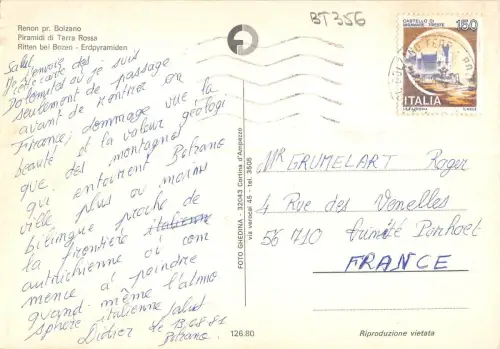 Renon pr. Bolzano
Piramidi di Terra Rossa
Ritten bei Bozen - Erdpyramiden
BT356
CASTELLO DI
MIRAMARE TRIESTE
150
ITALIA
Salut
J'envoie
cette carte des
Dolomites où je suis
seulement de passage
avant de rentrer en
France; dommage vue la
beauté et la valeur géologi
que des montagnes
qui entourent
ville plus ou moins
bilingue proche de
la frontière italienne
autrichienne où com
mence à poindre
quand-même l'atmo
sphère italienne, salut
Didier le 13.08.81
FOTO GHEDINA - 32043 Cortina d'Ampezzo
via verocai 45 - tel. 3606
Mr GRUMELART Roger
4 Rue des Venelles
56 710
FRANCE
126.80
Riproduzione vietata